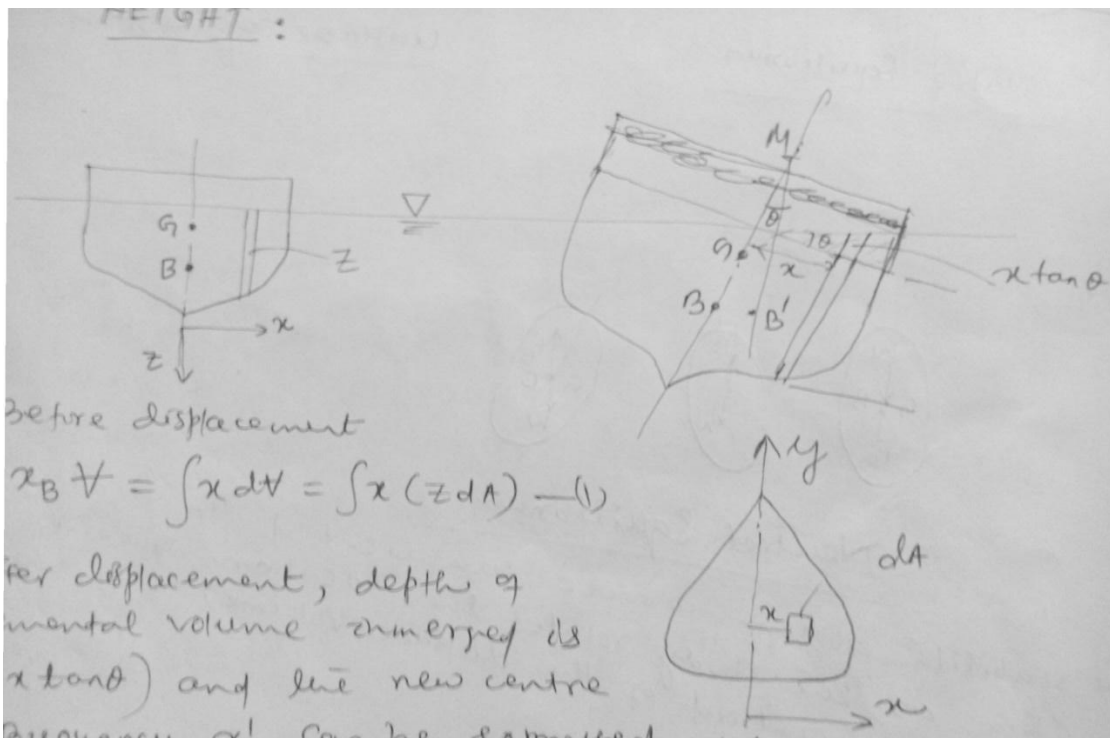 HEIGHT :
G
B
Z
x
Z
M
θ
θ
G
x
x tan θ
B
B'
Before displacement
x_B V = ∫ x dV = ∫ x (Z dA) —(1)
y
dA
x
x
fter displacement, depth of
mental volume immerged is
x tanθ) and the new centre
can be